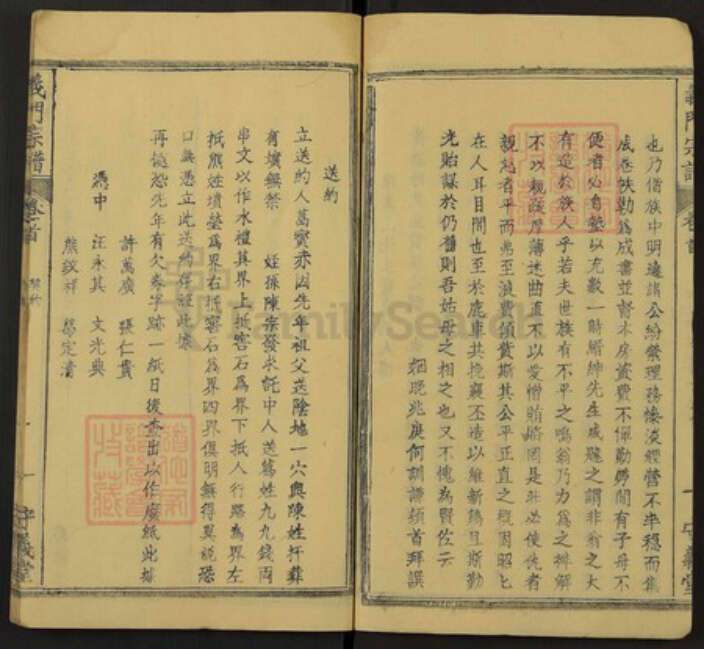 也乃偕族中明達諸公紛繁理務慘淡經營不半穩而集
成卷帙勒為成書並督本房資費不佩勤勞間有子母不
便者必自墊以充數一時縉紳先生咸韙之謂非翁之大
有造於族人乎若夫世族有不平之鳴翁乃力為之排解
不以親疏厚薄迷曲直不以愛憎賄賂罔是非必使仇者
親怨者平而弗至浪費須貲斯其公平正直之概固昭匕
在人耳目間也至於鹿車共挽襄丕造以維新鴻且斯勤
光貽謀於仍舊則吾姑母之相之也又不愧為賢佐云
姻晚兆庚何訓謙頓首拜譔
義門宗譜
卷首
一
守義堂
送約
立送約人葛賓赤因先年祖父送陰地一穴與陳姓扦葬
有墳無禁 姪孫陳宗發求託中人送葛姓九九錢兩
串文以作水禮其界上抵窖石為界下抵人行路為界左
抵熊姓墳塋為界右抵窖石為界四界俱明無得異說恐
口無憑立此送約存證此據
再批恐先年有欠舉字跡一紙日後查出以作廢紙此據
許萬廣 張仁貴
憑中 汪永其 文光典
熊鉸祥 葛定清
義門宗譜
卷首
契約
一
守義堂
FamilySearch